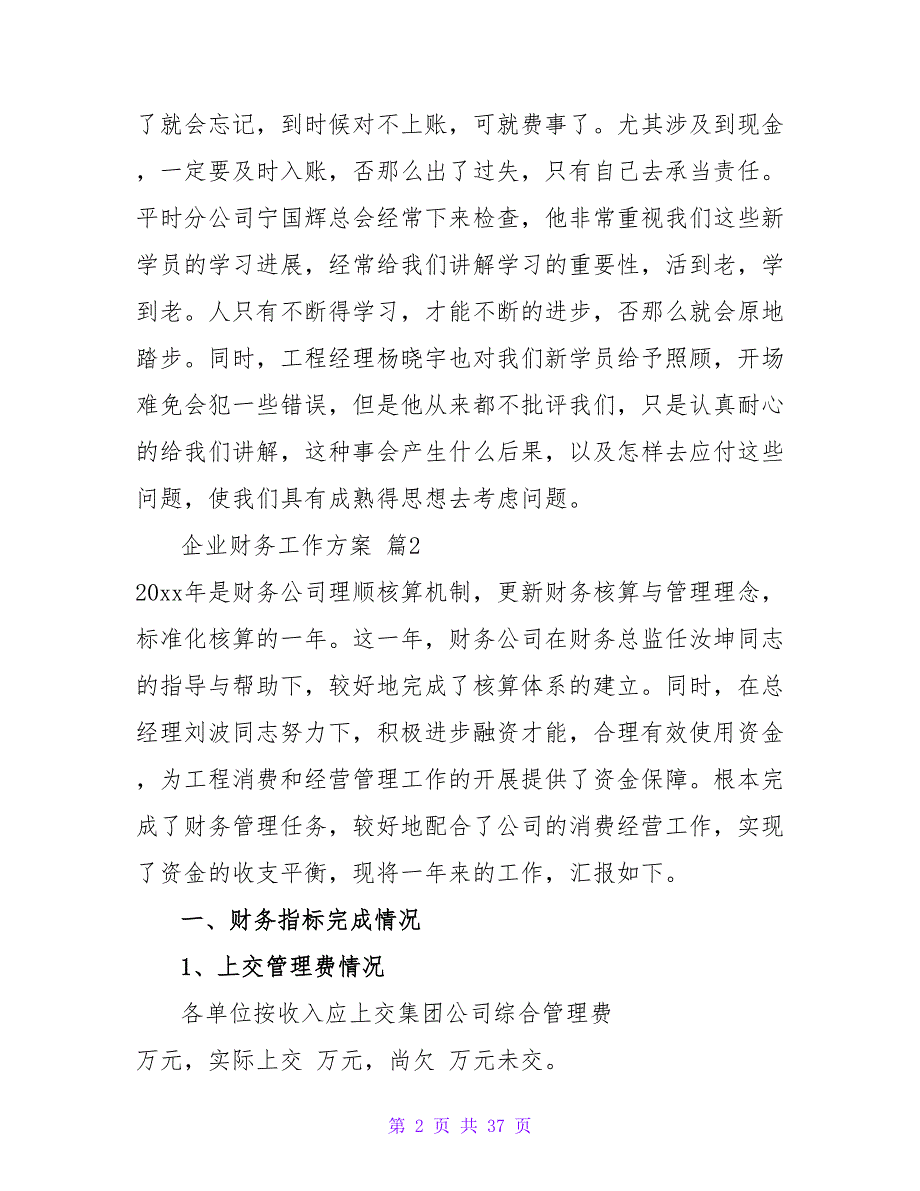 了就会忘记，到时候对不上账，可就费事了。尤其涉及到现金
，一定要及时入账，否那么出了过失，只有自己去承当责任。
平时分公司宁国辉总会经常下来检查，他非常重视我们这些新
学员的学习进展，经常给我们讲解学习的重要性，活到老，学
到老。人只有不断得学习，才能不断的进步，否那么就会原地
踏步。同时，工程经理杨晓宇也对我们新学员给予照顾，开场
难免会犯一些错误，但是他从来都不批评我们，只是认真耐心
的给我们讲解，这种事会产生什么后果，以及怎样去应付这些
问题，使我们具有成熟得思想去考虑问题。
企业财务工作方案 篇2
20xx年是财务公司理顺核算机制，更新财务核算与管理理念，
标准化核算的一年。这一年，财务公司在财务总监任汝坤同志
的指导与帮助下，较好地完成了核算体系的建立。同时，在总
经理刘波同志努力下，积极进步融资才能，合理有效使用资金
，为工程消费和经营管理工作的开展提供了资金保障。根本完
成了财务管理任务，较好地配合了公司的消费经营工作，实现
了资金的收支平衡，现将一年来的工作，汇报如下。
一、财务指标完成情况
1、上交管理费情况
各单位按收入应上交集团公司综合管理费
万元，实际上交 万元，尚欠 万元未交。
第 2 页 共 37 页